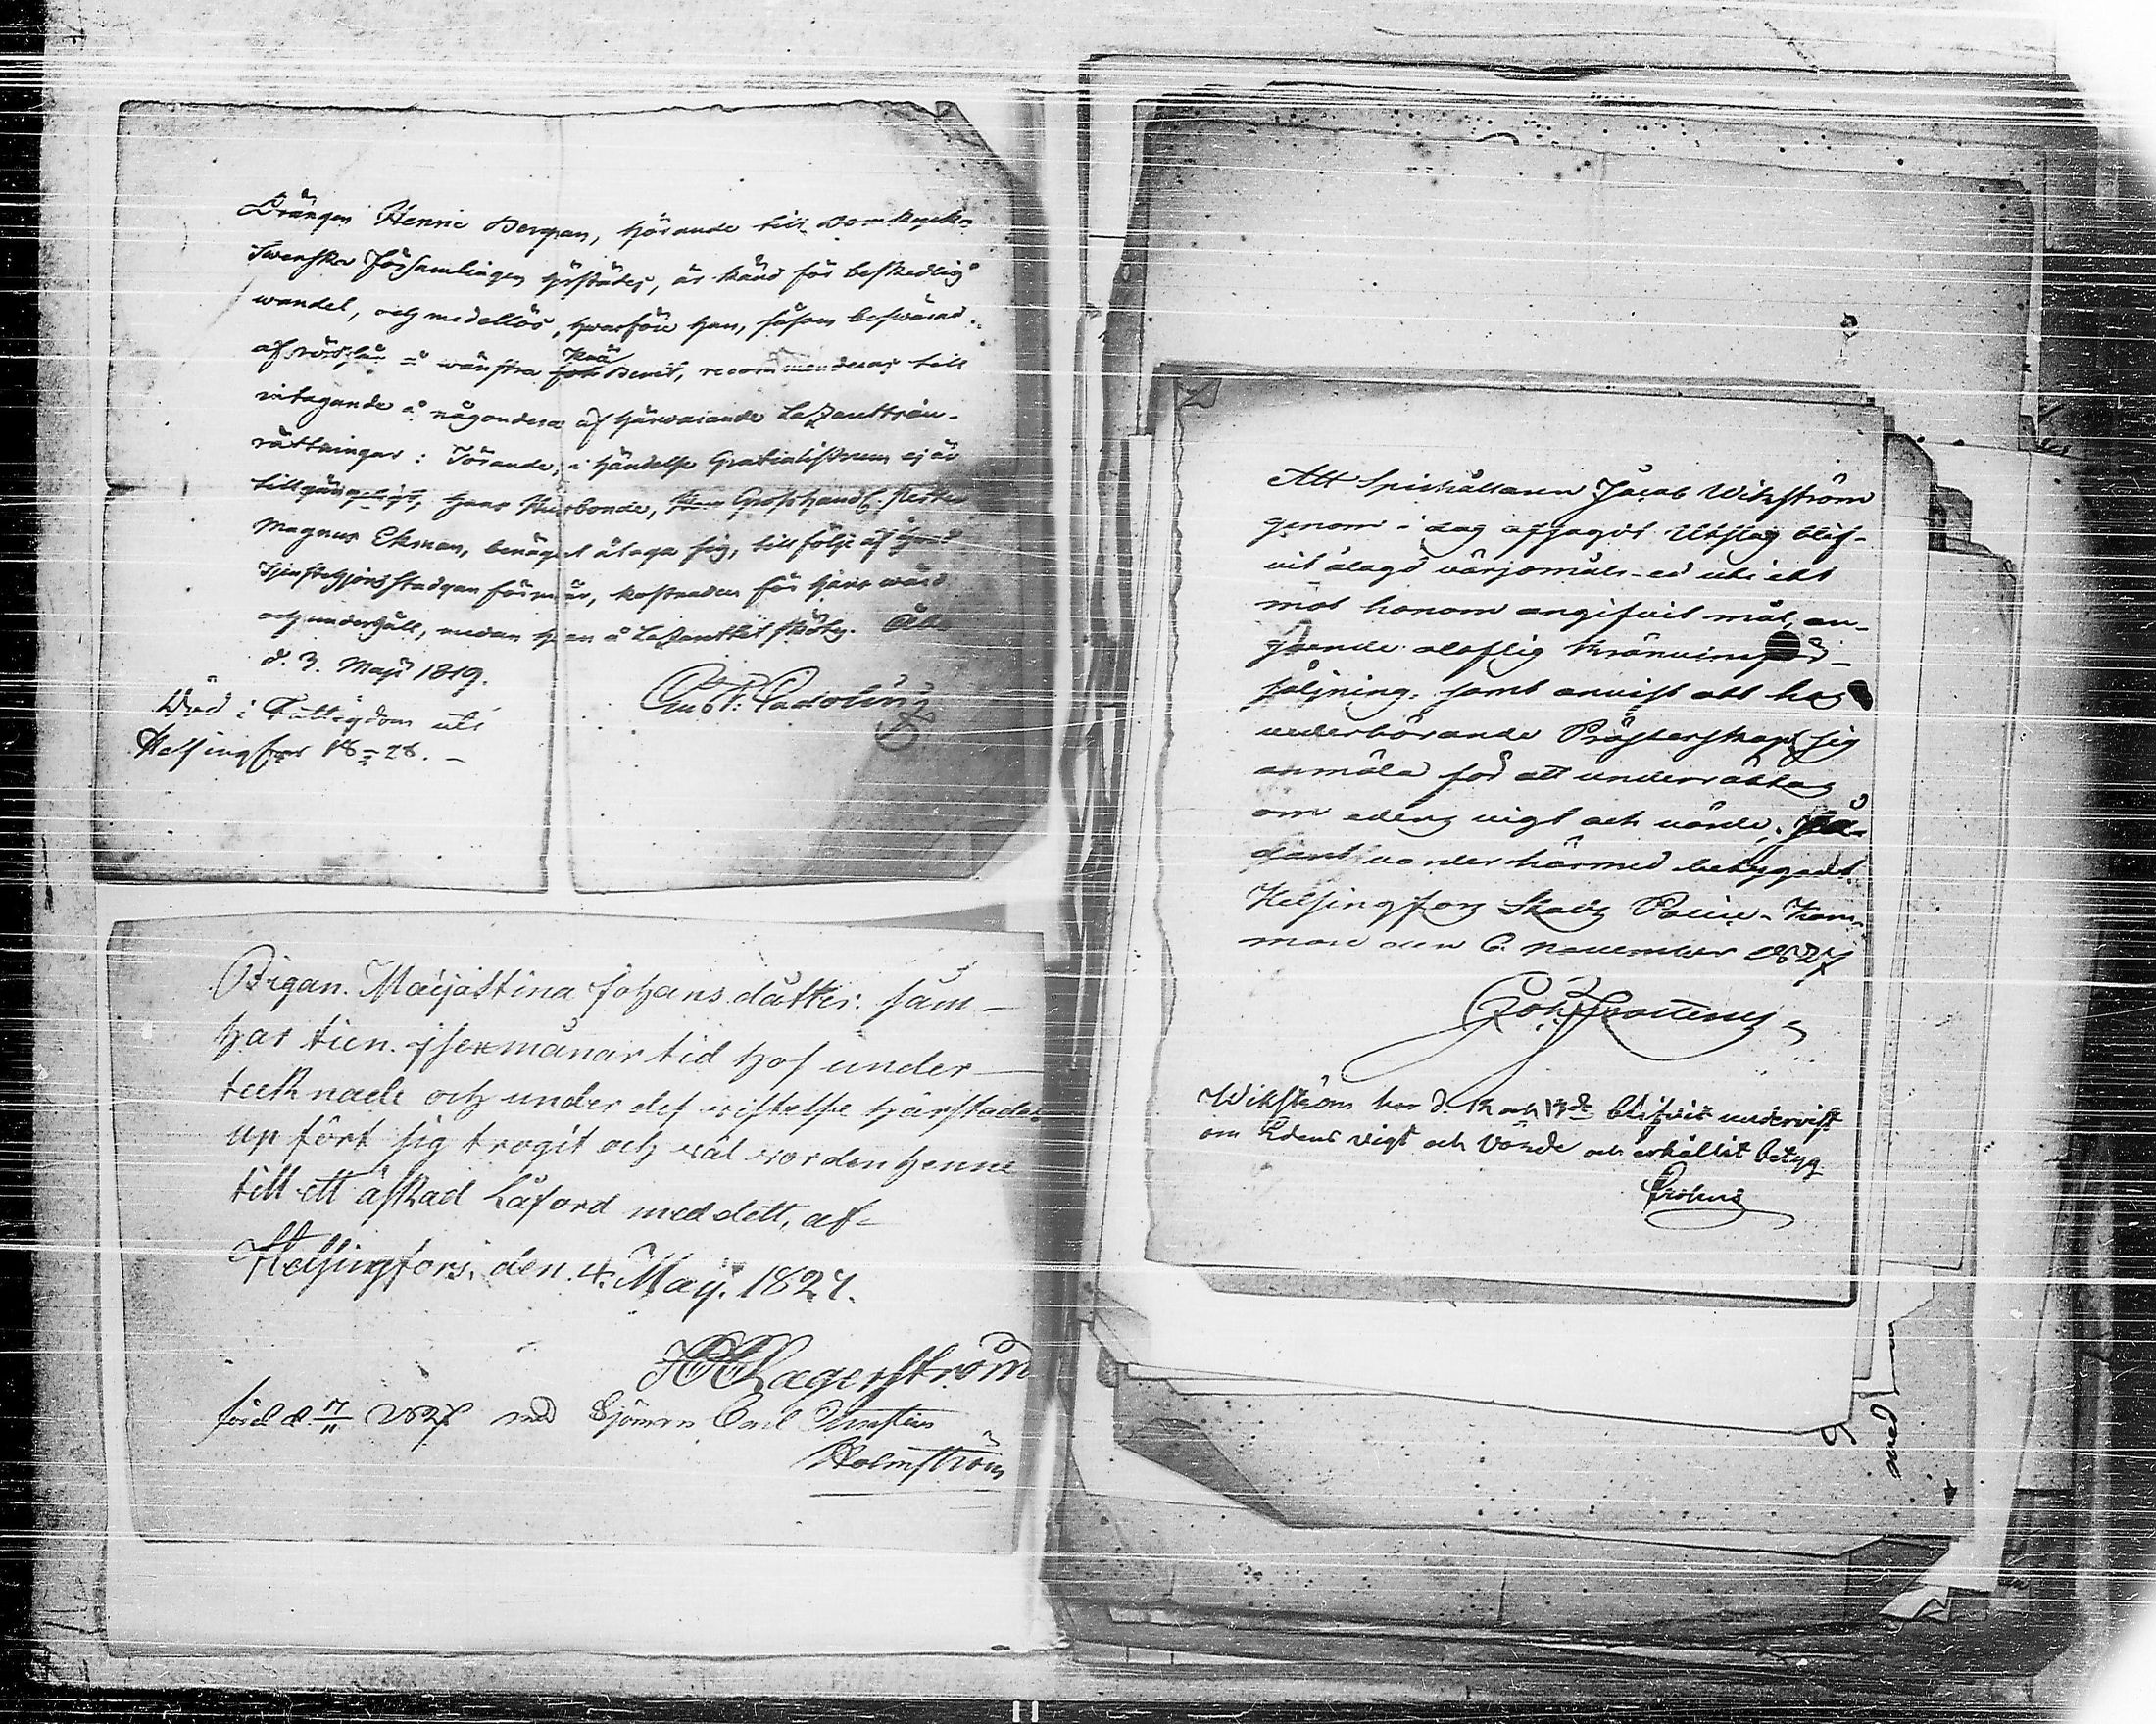 Drängen Henric Bergman, hörande till Domkyrko
Swenska Församlingen härstädes, är känd för beskedlig
wandel, och medellös, hwarföre han, såsom beswärad
af å wänstra knä, recommenderas till
intagande å någondera af härwarande Lazarettsin-
rättningar: Börande, i händelse Gratialistrum ej är
tillgängeligt, hans Husbonde, Herr Grosshandl.
Magnus Ekman, benäget åtaga sig, till följe af hwad
Tjenstehjons Stadgan förmår, kostnaden för hans wård
och underhåll, medan han å Lazarettet skötes. Åbo
d. 3. Maji 1819.
Gust. Gadolin
Död i Fattigdom uti
Helsingfors 18 28.
Pigan. Maijastina Johans dåtter. såm
har tien. j sex månar tid hos under
tecknade och under des wistelse härstades
up fört sig trogit och wäl worden henne
till ett åskad Låford med dett, af
Helsingfors, den. 4. Maij. 1827.
Lagerström
d 17/11 1827 med Sjöman Carl Christian
Holmström
Att Spishållaren Jacob Wikström
genom i dag afsagdt Utslag blif-
vit ålagd värjomåls-ed uti ett
mot honom angifvit mål, an-
gående olaflig bränvinsför-
säljning, samt anvist att hos
vederbörande Prästerskap sig
anmäla för att underrättas
om edens vigt och värde; Så-
dant varder härmed betygadt.
Helsingfors Stads Police-Kam-
mare den 6. november 1827
Wikström har d. 12 och 13de blifvit undervist
om Edens vigt och värde och erhållit betyg.
Crohns
med